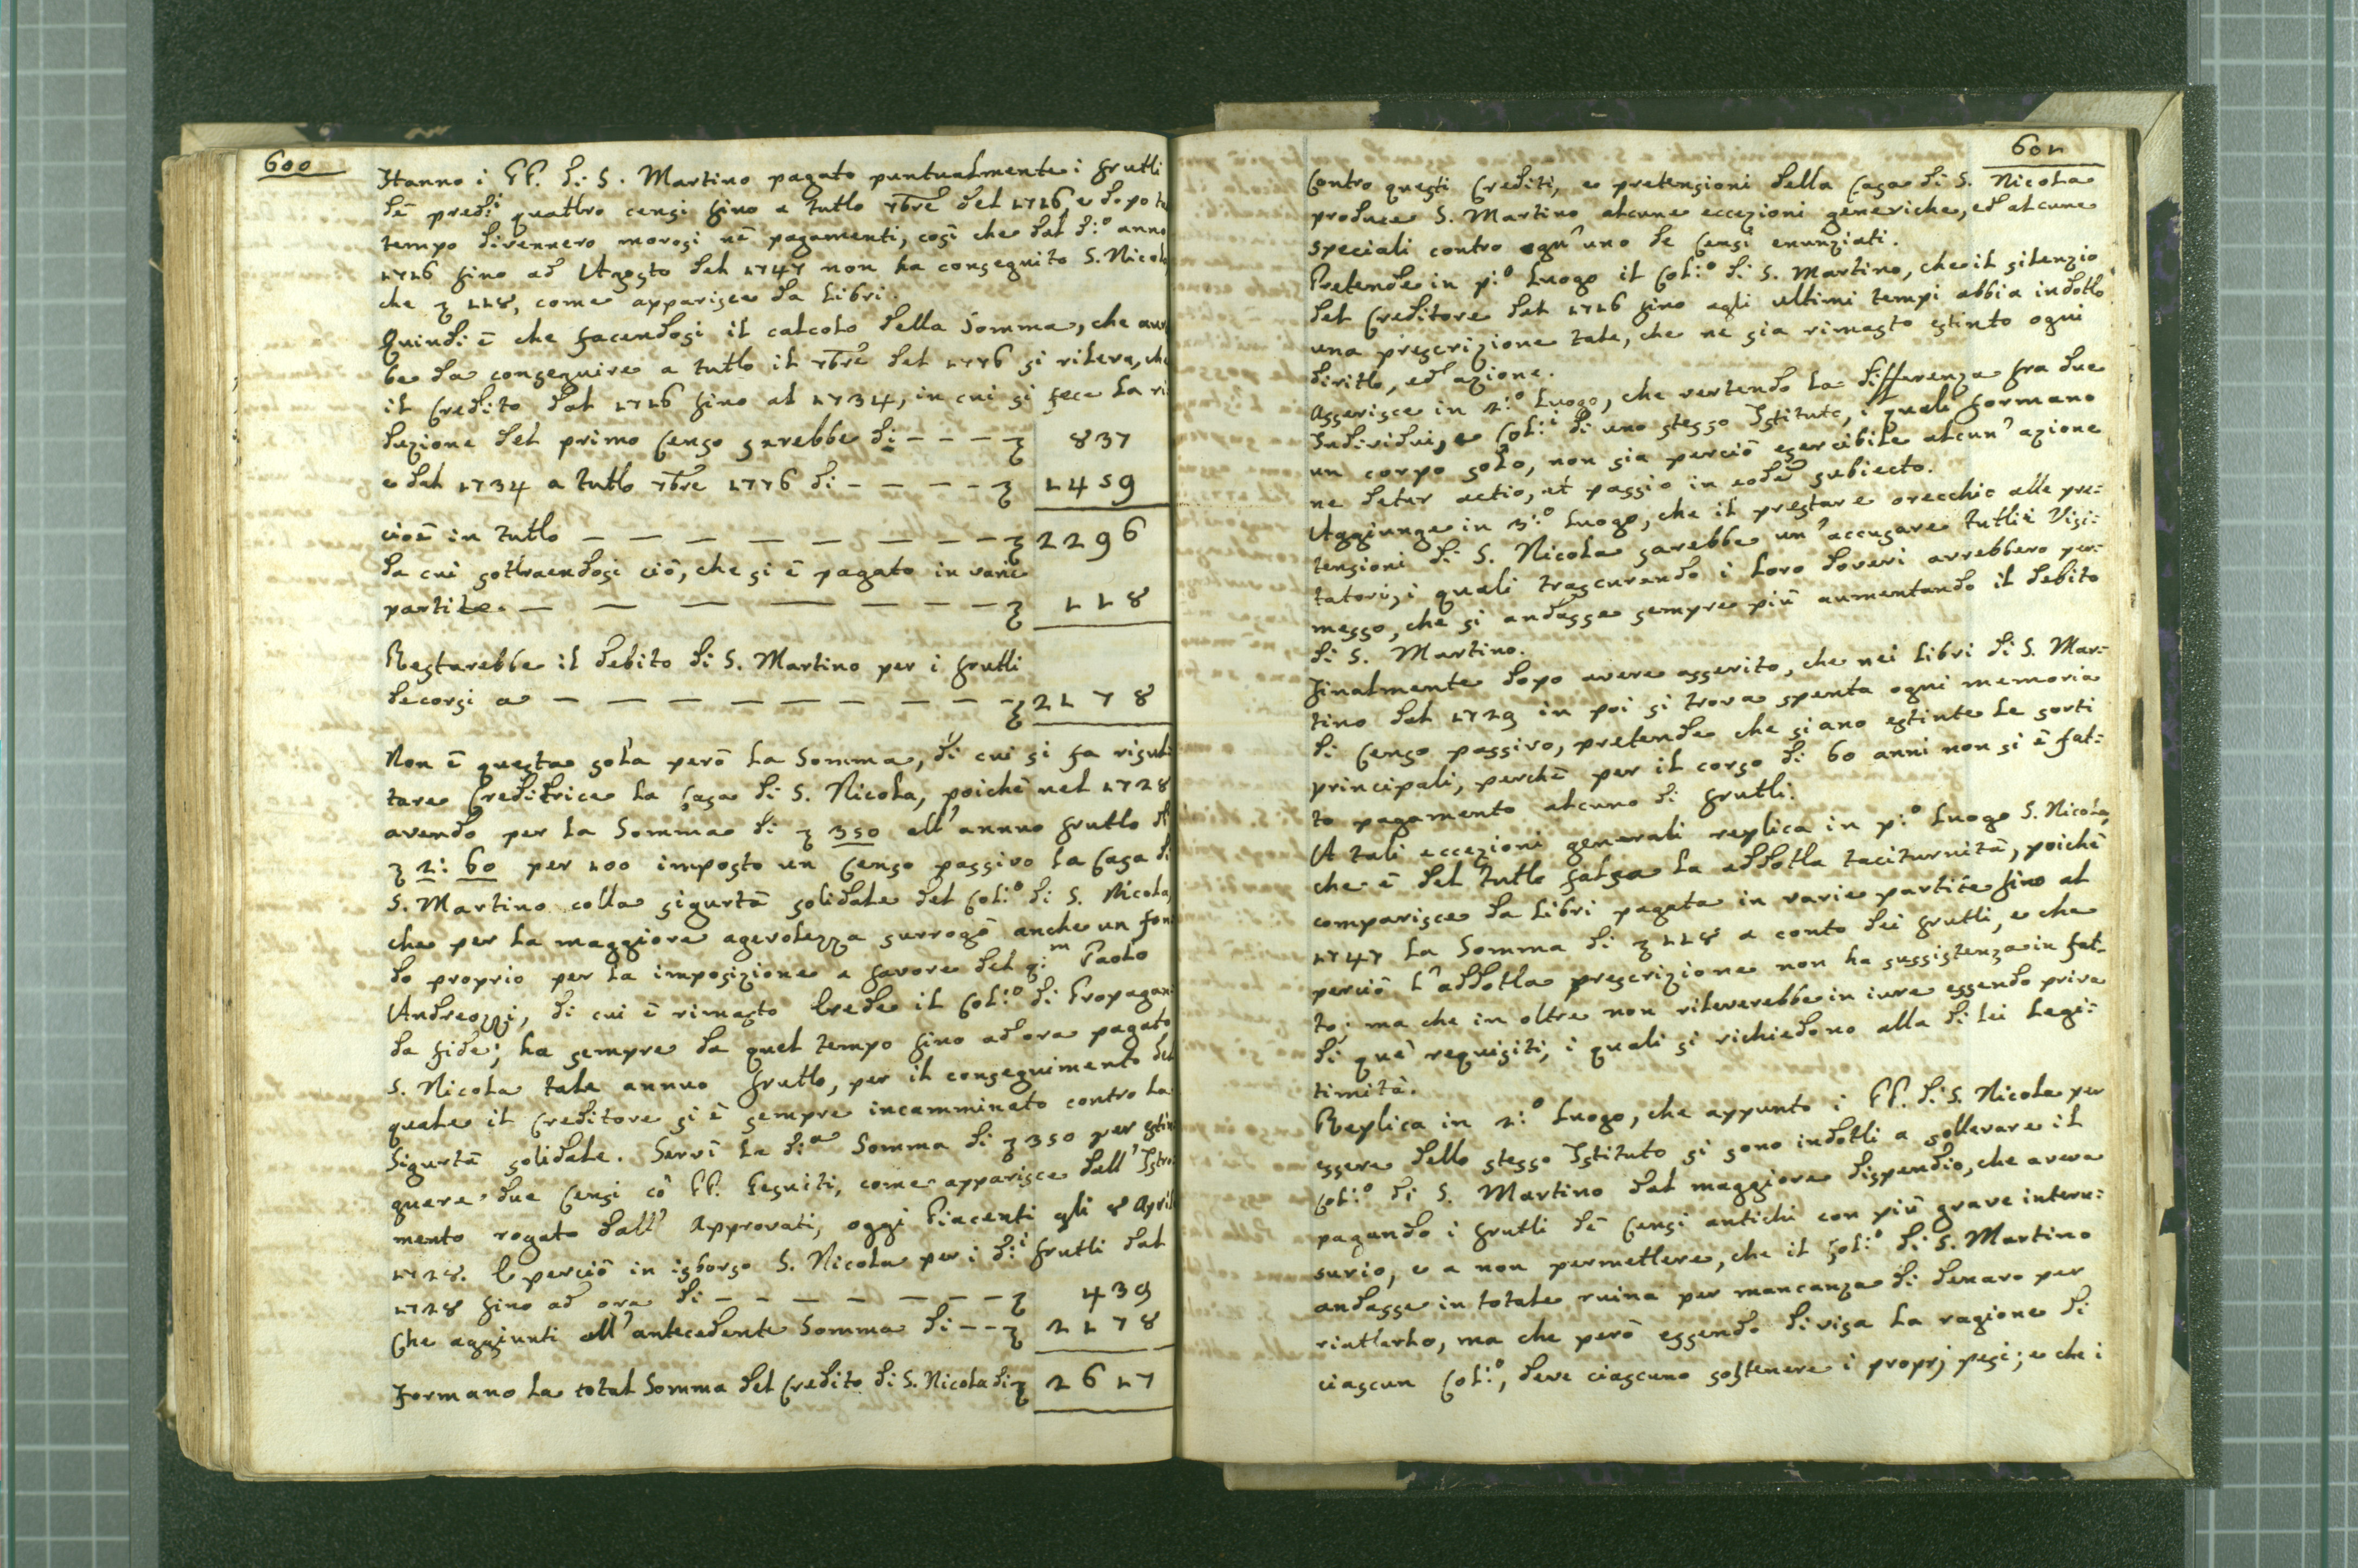 600
Hanno i PP. di S. Martino pagato puntualmente i frutti
dè pred:i quattro censi fino a tutto 7bre del 1716 e dopo tal
tempo divennero morosi nè pagamenti, così che dal d:o anno
1716 fino ad Agosto del 1747 non ha conseguito S. Nicola
che ʒ 118, come apparisce da libri.
Quindi è che facendosi il calcolo della Somma, che avreb
be da conseguire a tutto il 7bre del 1776 si rileva, che
il Credito dal 1716 fino al 1734, in cui si fece la ri
duzione del primo Censo sarebbe di - - - - ʒ 837
e dal 1734 a tutto 7bre 1776 di - - - - - ʒ 1459
cioè in tutto — — — — — — — — ʒ 2296
da cui sottraendosi ciò, che si è pagato in varie
partite. — — — — — — — — ʒ 118
Restarebbe il debito di S. Martino per i frutti
decorsi a — — — — — — — — — ʒ 2178
Non è questa sola però la Somma, di cui si fa risul
tare Creditrice la Casa di S. Nicola, poichè nel 1728
avendo per la Somma di ʒ 350 all'annuo frutto di
ʒ 2: 60 per 100 imposto un Censo passivo la Casa di
S. Martino colla sigurtà solidale del Col:o di S. Nicola,
che per la maggiore agevolezza surrogò anche un fon
do proprio per la imposizione a favore del q:m Paolo
Andreozzi, di cui è rimasto Erede il Col:o di Propagan
da fide; ha sempre da quel tempo fino ad ora pagato
S. Nicola tale annuo frutto, per il conseguimento del
quale il Creditore si è sempre incamminato contro la
Sigurtà solidale. Servì la d:a Somma di ʒ 350 per estin
guere due Censi cò PP. Gesuiti, come apparisce dall'Istro
mento rogato dall' Approvati, oggi Piacenti gli 8 Aprile
1728. E perciò in isborso S. Nicola per i d:i frutti dal
1728 fino ad ora di - - - - - - - - ʒ 439
Che aggiunti all'antecedente Somma di - - ʒ 2178
Formano la total Somma del Credito di S. Nicola di ʒ 2617
601
Contro questi Crediti, e pretensioni della Casa di S. Nicola
produce S. Martino alcune eccezioni generiche, ed alcune
speciali contro ogn'uno de Censi enunziati.
Pretende in p:o luogo il Col:o di S. Martino, che il silenzio
del Creditore dal 1716 fino agli ultimi tempi abbia indotto
una prescrizione tale, che ne sia rimasto estinto ogni
diritto, ed azione.
Asserisce in 2:o Luogo, che vertendo la differenza fra due
Individui, e Col:i di uno stesso Istituto, i quali formano
un corpo solo, non sia perciò esercibile alcun'azione
ne detur actio, et passio in eodem subiecto.
Aggiunge in 3:o Luogo, che il prestare orecchio alle pre:
tensioni di S. Nicola sarebbe un'accusare tutti i Visi:
tatori, i quali trascurando i loro doveri avrebbero per:
messo, che si andasse sempre più aumentando il debito
di S. Martino.
Finalmente dopo avere asserito, che nei libri di S. Mar:
tino dal 1729 in poi si trova spenta ogni memoria
di Censo passivo, pretende che siano estinte le sorti
principali, perchè per il corso di 60 anni non si è fat:
to pagamento alcuno di frutti.
A tali eccezioni generali replica in p:o Luogo S. Nicola,
che è del tutto falsa la addotta taciturnità, poichè
comparisce da libri pagata in varie partite fino al
1747 la Somma di ʒ 118 a conto dei frutti, e che
perciò l'addotta prescrizione non ha sussistenza in fat-
to; ma che in oltre non rileverebbe in iure essendo priva
di què requisiti, i quali si richiedono alla di lei legi:
timità.
Replica in 2:o Luogo, che appunto i PP. di S. Nicola per
essere dello stesso Istituto si sono indotti a sollevare il
Col:o di S. Martino dal maggiore dispendio, che aveva
pagando i frutti dè Censi antichi con più grave interu:
surio, e a non permettere, che il Col:o di S. Martino
andasse in totale ruina per mancanza di denaro per
riattarlo, ma che però essendo divisa la ragione di
ciascun Col:o, deve ciascuno sostenere i proprj pesi; e che i